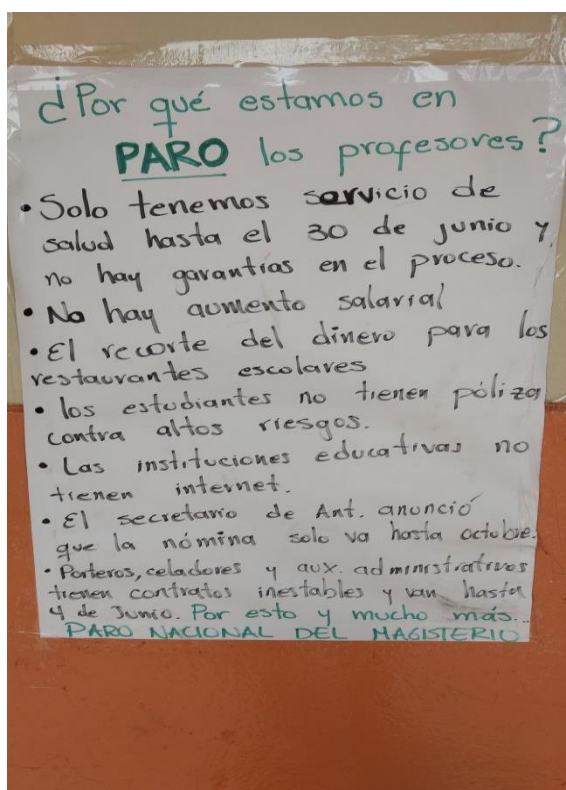 ¿Por qué estamos en
PARO los profesores?
• Solo tenemos servicio de
salud hasta el 30 de junio y
no hay garantías en el proceso.
• No hay aumento salarial
• El recorte del dinero para los
restaurantes escolares
• los estudiantes no tienen póliza
contra altos riesgos.
• Las instituciones educativas no
tienen internet.
• El secretario de Ant. anunció
que la nómina solo va hasta octubre.
• Porteros, celadores y aux. administrativos
tienen contratos inestables y van hasta
4 de Junio. Por esto y mucho más...
PARO NACIONAL DEL MAGISTERIO